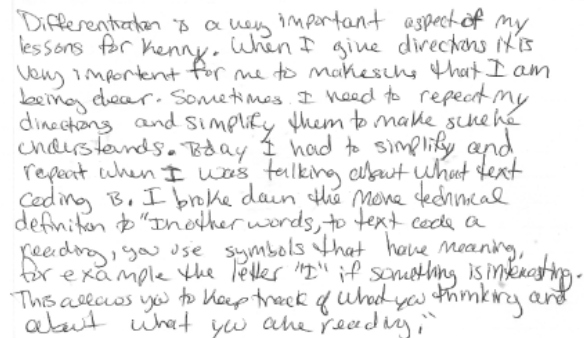 Differentiation is a very important aspect of my
lessons for Kenny. When I give directions it is
very important for me to make sure that I am
being clear. Sometimes I need to repeat my
directions and simplify them to make sure he
understands. Today I had to simplify and
repeat when I was talking about what text
coding is. I broke down the more technical
definition to "In other words, to text code a
reading, you use symbols that have meaning,
for example the letter "I" if something is interesting.
This allows you to keep track of what you thinking and
about what you are reading."